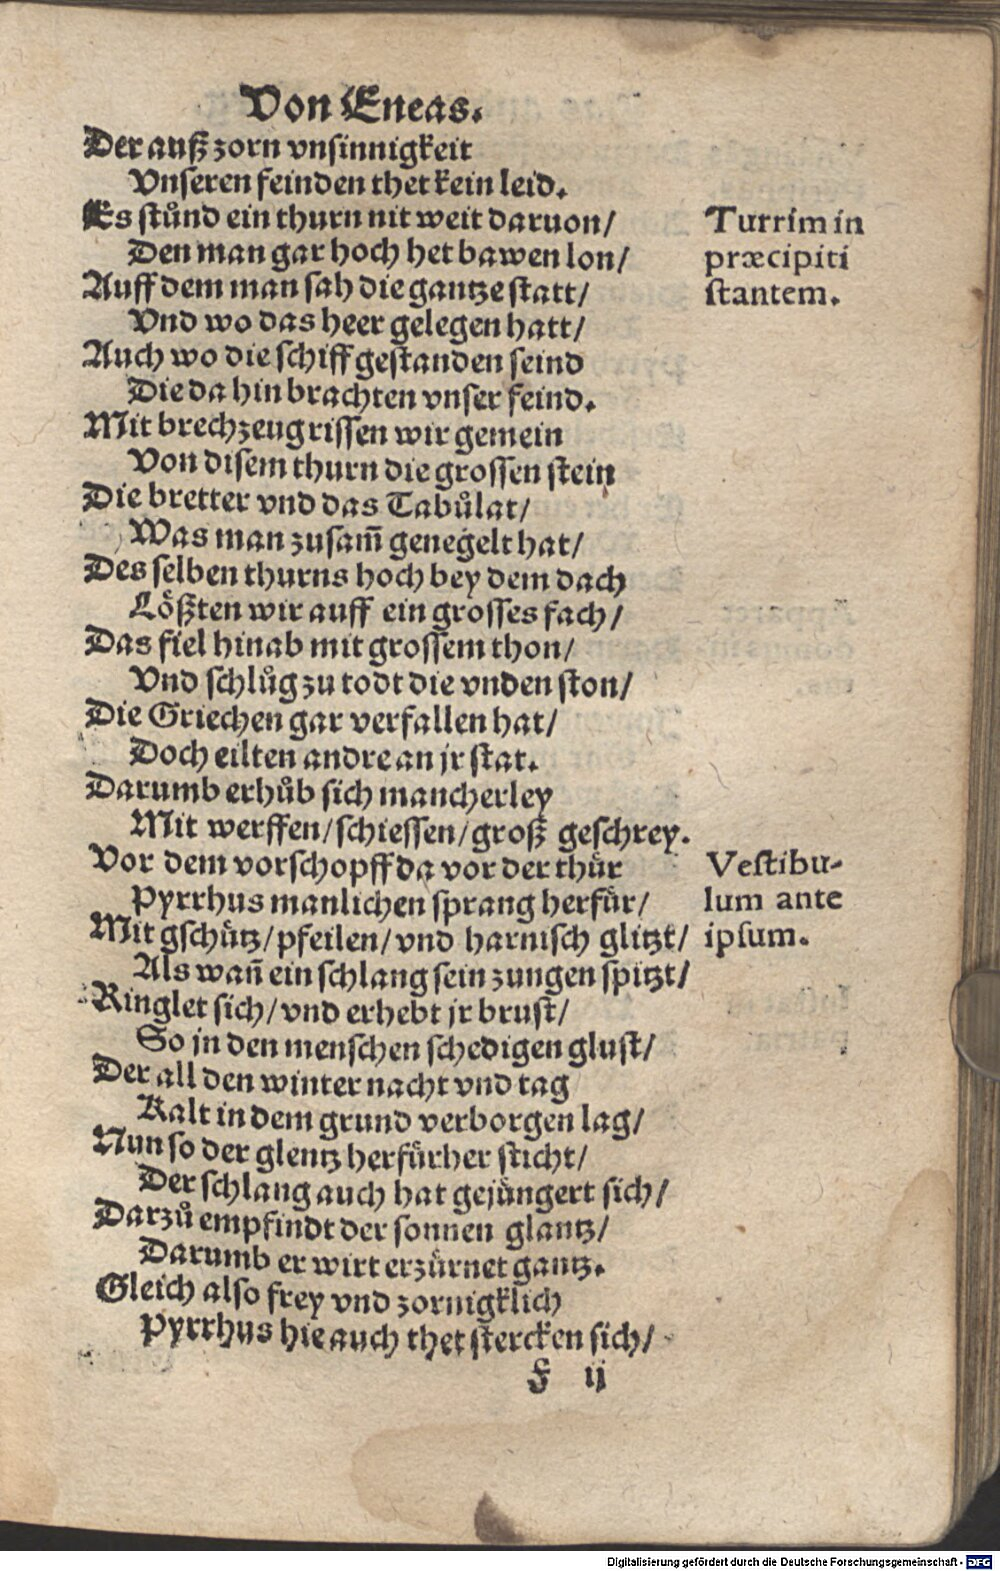 Von Eneas.
Der auß zorn vnsinnigkeit
Vnseren feinden thet kein leid.
Es stůnd ein thurn nit weit daruon/
Den man gar hoch het bawen lon/
Auff dem man sah die gantze statt/
Vnd wo das heer gelegen hatt/
Auch wo die schiff gestanden seind
Die da hin brachten vnser feind.
Mit brechzeug rissen wir gemein
Von disem thurn die grossen stein
Die bretter vnd das Tabůlat/
Was man zusam̃ genegelt hat/
Des selben thurns hoch bey dem dach
Lößten wir auff ein grosses fach/
Das fiel hinab mit grossem thon/
Vnd schlůg zu todt die vnden ston/
Die Griechen gar verfallen hat/
Doch eilten andre an jr stat.
Darumb erhůb sich mancherley
Mit werffen/schiessen/groß geschrey.
Vor dem vorschopff da vor der thür
Pyrrhus manlichen sprang herfür/
Mit gschütz/pfeilen/vnd harnisch glitzt/
Als wañ ein schlang sein zungen spitzt/
Ringlet sich/vnd erhebt jr brust/
So jn den menschen schedigen glust/
Der all den winter nacht vnd tag
Kalt in dem grund verborgen lag/
Nun so der glentz herfürher sticht/
Der schlang auch hat gejüngert sich/
Darzů empfindt der sonnen glantz/
Darumb er wirt erzürnet gantz.
Gleich also frey vnd zornigklich
Pyrrhus hie auch thet stercken sich/
F ij
Turrim in
præcipiti
stantem.
Vestibu-
lum ante
ipsum.
Digitalisierung gefördert durch die Deutsche Forschungsgemeinschaft - DFG